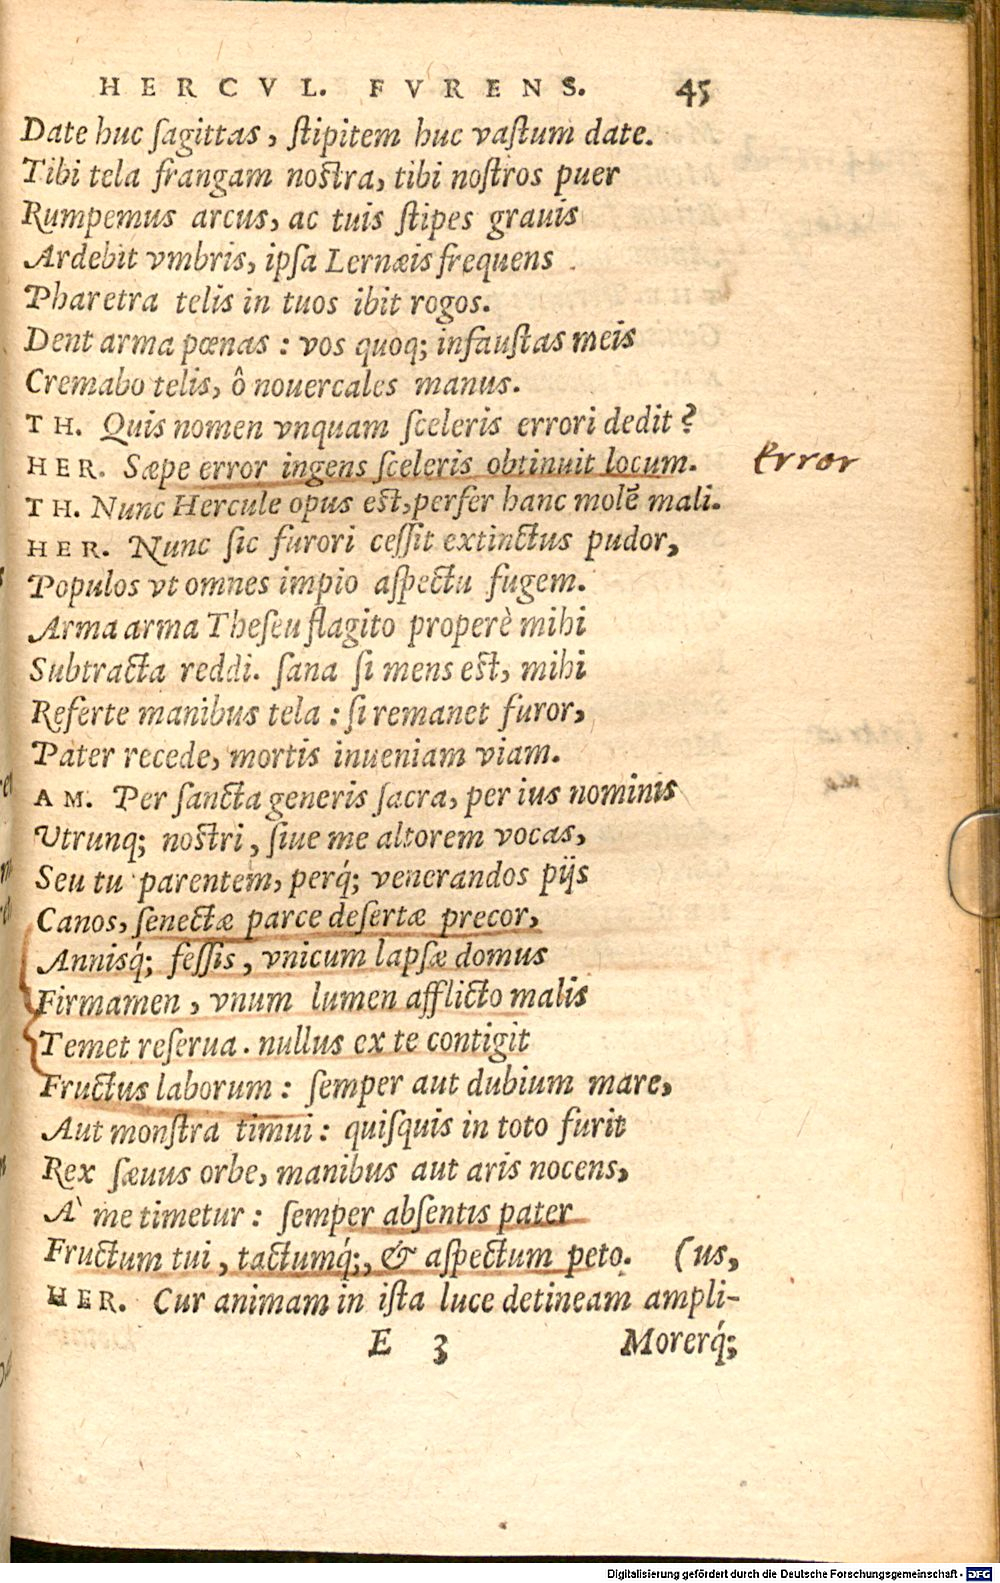 HERCVL. FVRENS. 45
Date huc ſagittas, ſtipitem huc vaſtum date.
Tibi tela frangam noſtra, tibi noſtros puer
Rumpemus arcus, ac tuis ſtipes grauis
Ardebit vmbris, ipſa Lernæis frequens
Pharetra telis in tuos ibit rogos.
Dent arma pœnas : vos quoq; infauſtas meis
Cremabo telis, ô nouercales manus.
TH. Quis nomen vnquam ſceleris errori dedit?
HER. Sæpe error ingens ſceleris obtinuit locum. Error
TH. Nunc Hercule opus eſt, perfer hanc molē mali.
HER. Nunc ſic furori ceſſit extinctus pudor,
Populos vt omnes impio aſpectu fugem.
Arma arma Theſeu flagito properè mihi
Subtracta reddi. ſana ſi mens eſt, mihi
Referte manibus tela : ſi remanet furor,
Pater recede, mortis inueniam viam.
AM. Per ſancta generis ſacra, per ius nominis
Utrunq; noſtri, ſiue me altorem vocas,
Seu tu parentem, perq́; venerandos pijs
Canos, ſenectæ parce deſertæ precor,
Annisq́; feſſis, vnicum lapſæ domus
Firmamen, vnum lumen afflicto malis
Temet reſerua. nullus ex te contigit
Fructus laborum : ſemper aut dubium mare,
Aut monſtra timui : quiſquis in toto furit
Rex ſæuus orbe, manibus aut aris nocens,
A` me timetur : ſemper abſentis pater
Fructum tui, tactumq́;, & aſpectum peto. (us,
HER. Cur animam in iſta luce detineam ampli-
E 3 Morerq́;
Digitalisierung gefördert durch die Deutsche Forschungsgemeinschaft - DFG